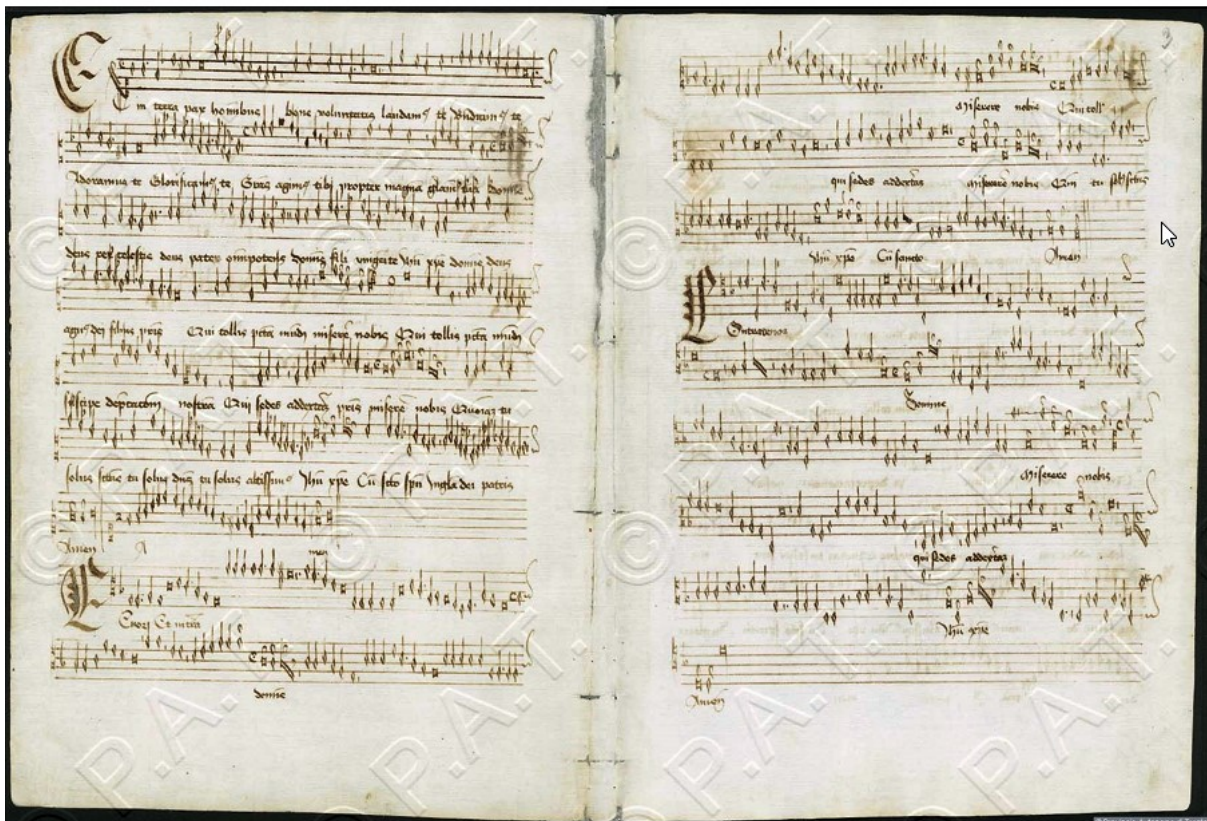 Et in terra pax hominibus bone voluntatis laudamus te Bndicimus te
Adoramus te Glorificamus te Gras agimus tibi propter magna gloriam tua domine
deus rex celestis deus pater omnipotens domine fili unigenite Jhu xpe domine deus
agnus dei filius pris Qui tollis pcta mudi miserere nobis Qui tollis pcta mudi
suscipe nostra Qui sedes addextera pris miserere nobis Quoniam tu
solus sctus tu solus dns tu solus altissimus Jhu xpe Cu scto spu in gla dei patris
Amen A men
Tenor Et in terra
domine
3
Miserere nobis Qui toll
qui sedes addextera Miserere nobis Qm tu solus sctus
Jhu xpe Cu sancto Amen
Contratenor
Domine
Miserere nobis
qui sedes addextera
Jhu xpe
Amen
© P.A.T.